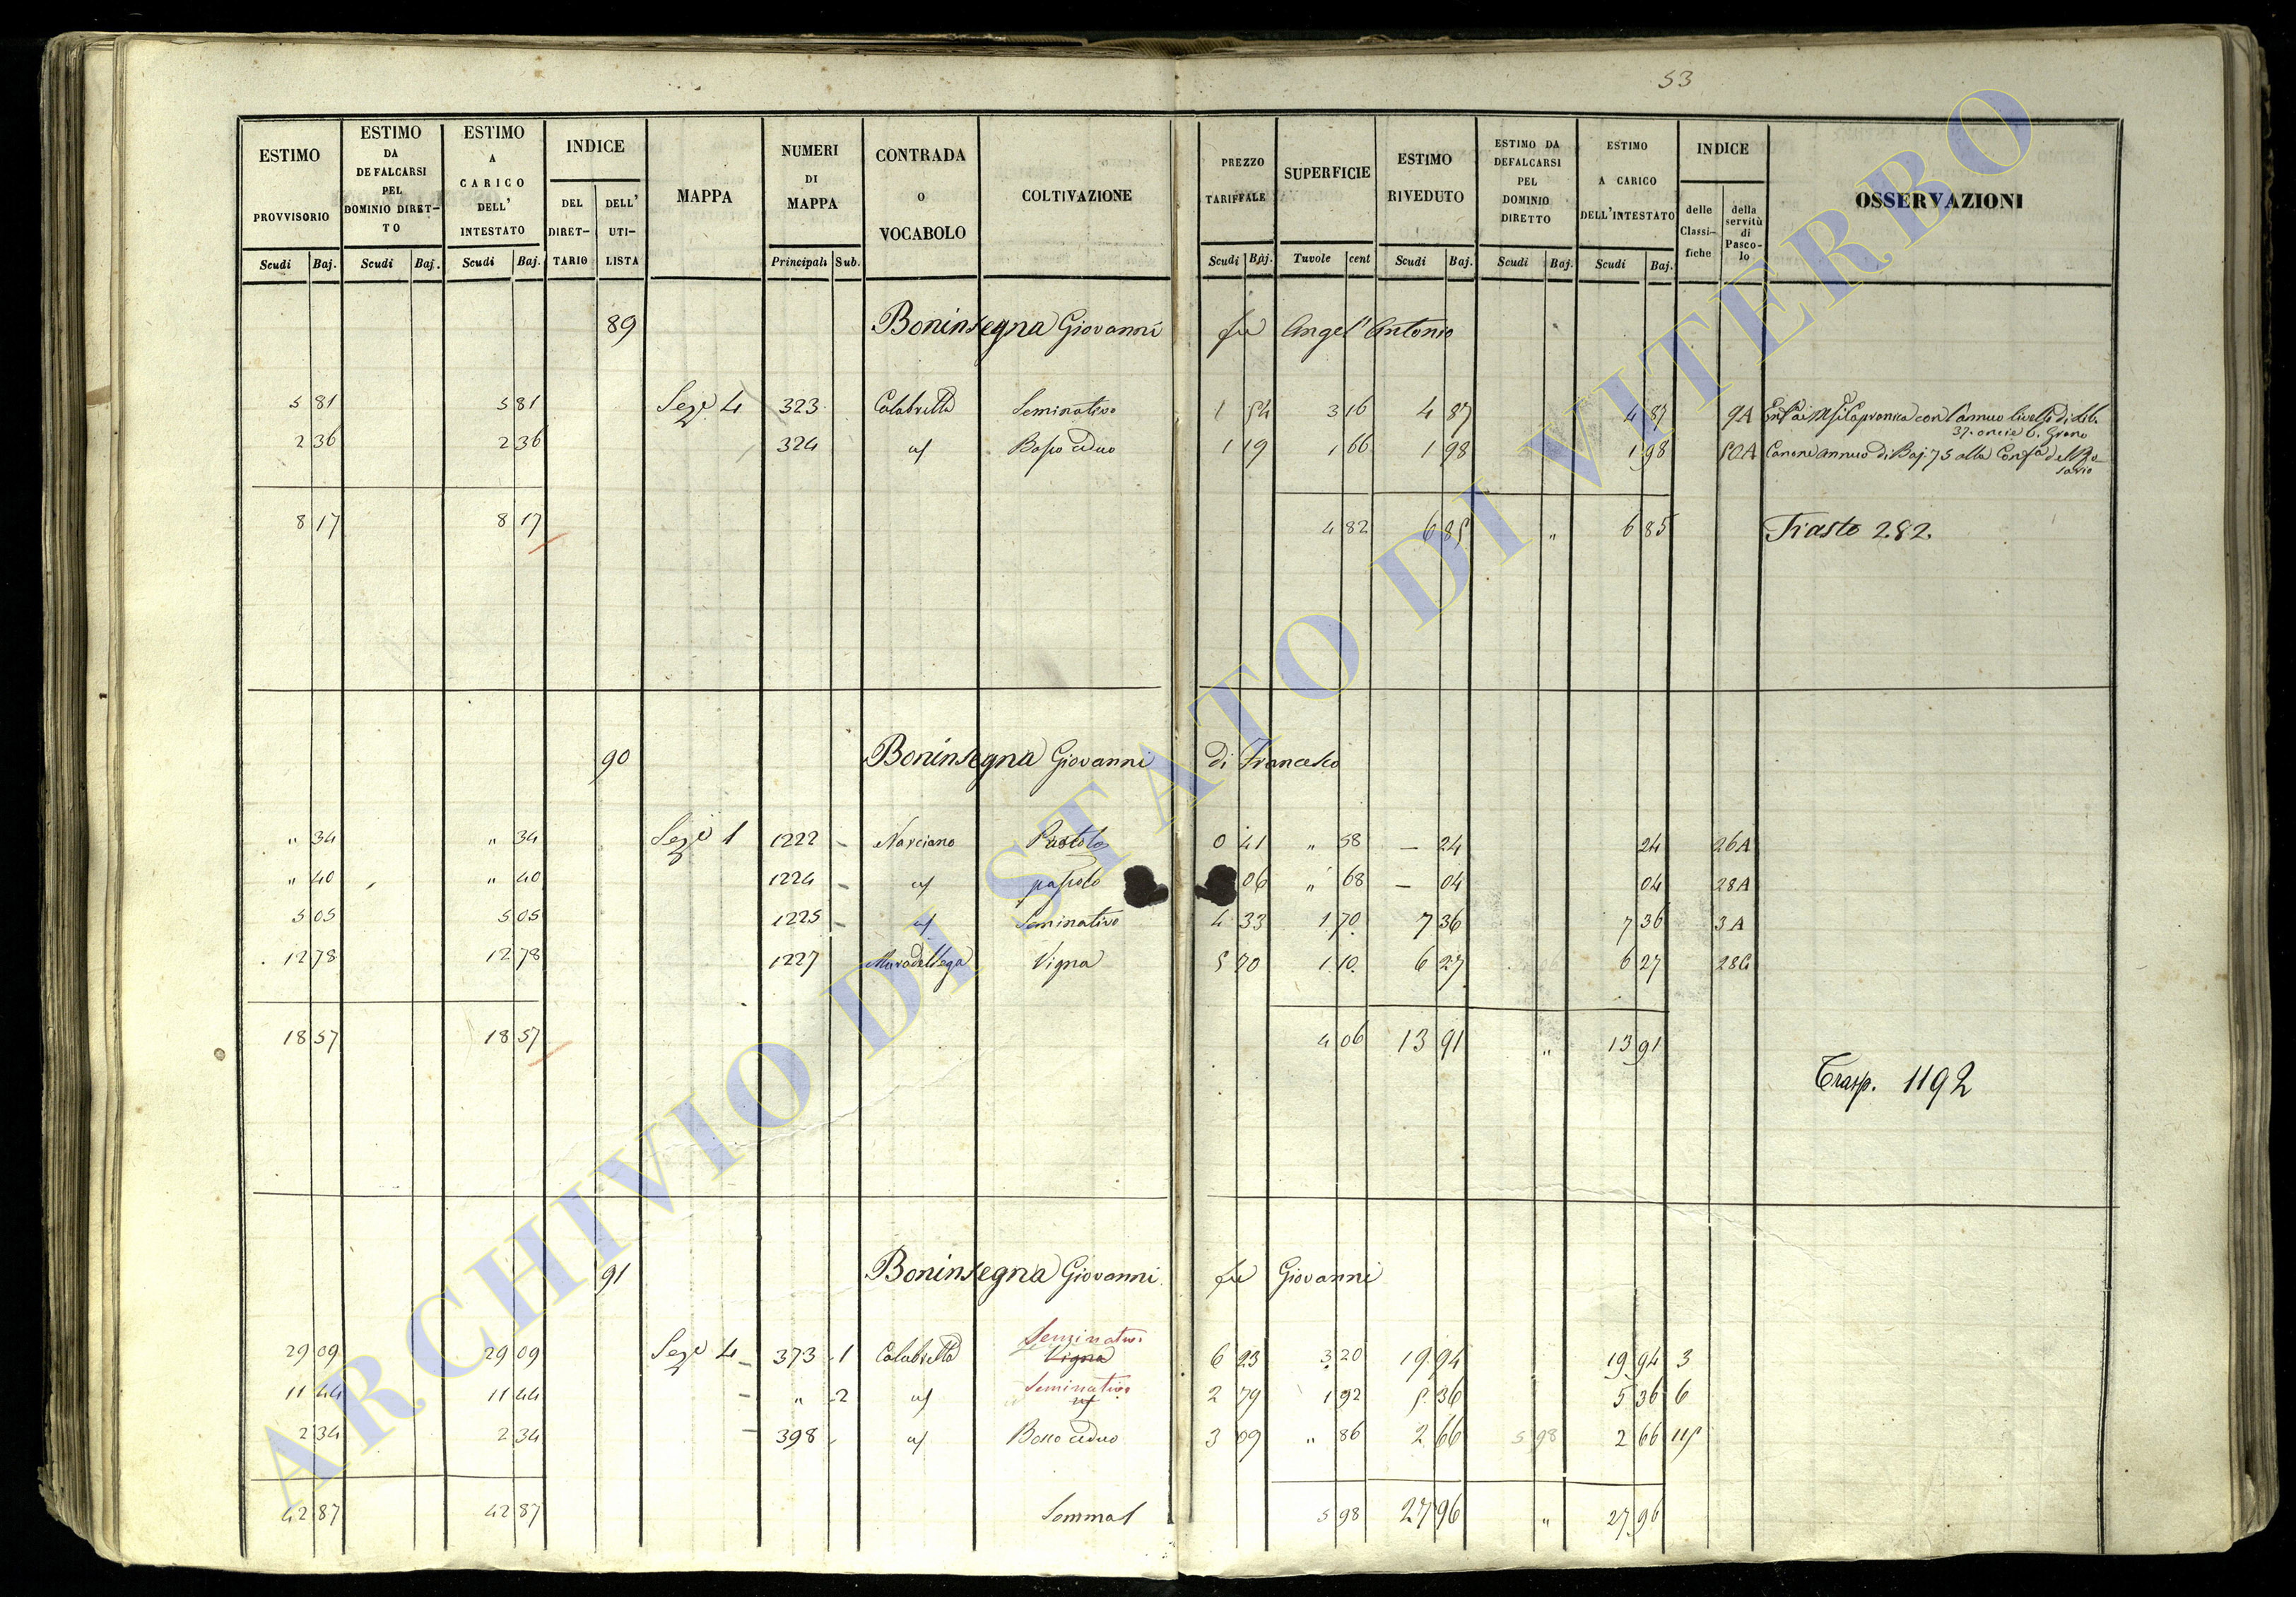 53
ESTIMO PROVVISORIO Scudi Baj.
ESTIMO DA DEFALCARSI PEL DOMINIO DIRETTO Scudi Baj.
ESTIMO A CARICO DELL' INTESTATO Scudi Baj.
INDICE DEL DIRETTARIO DELL' UTILISTA
MAPPA
NUMERI DI MAPPA Principali Sub.
CONTRADA o VOCABOLO
COLTIVAZIONE
PREZZO TARIFFALE Scudi Baj.
SUPERFICIE Tavole cent
ESTIMO RIVEDUTO Scudi Baj.
ESTIMO DA DEFALCARSI PEL DOMINIO DIRETTO Scudi Baj.
ESTIMO A CARICO DELL'INTESTATO Scudi Baj.
INDICE delle Classifiche della servitù di Pascolo
OSSERVAZIONI
89 Boninsegna Giovanni fu Angel'Antonio
5 81 5 81 Sezе 4 323 Calabretta Seminativo 1 54 3 16 4 87 4 87 9A con l'annuo
37. oncie 6. Grano
2 36 2 36 324 Bosco ceduo 1 19 1 66 1 98 1 98 50A Canone annuo di Baj 75 alla Confa del Ro-
sario
8 17 8 17 4 82 6 85 " 6 85 Trasto 282.
90 Boninsegna Giovanni di Francesco
" 34 " 34 Seze 1 1222 - Narciano 0 41 " 58 - 24 24 26A
" 40 " 40 1224 - pascolo 06 " 68 - 04 04 28A
5 05 5 05 1225 - Seminativo 4 33 1 70 7 36 7 36 3A
12 78 12 78 1227 Vigna 5 70 1 10 6 27 6 27
18 57 18 57 4 06 13 91 " 13 91
Trasp. 1192
91 Boninsegna Giovanni fu Giovanni
Seminativo
29 09 29 09 Seze 4 - 373 1 Calabretta Vigna 6 23 3 20 19 94 19 94 3
Seminativo
11 44 11 44 - " 2 2 79 1 92 5 36 5 36 6
2 34 2 34 - 398 Bosco ceduo 3 09 " 86 2 66 5 98 2 66 115
42 87 42 87 Somma 5 98 27 96 " 27 96
ARCHIVIO DI STATO DI VITERBO